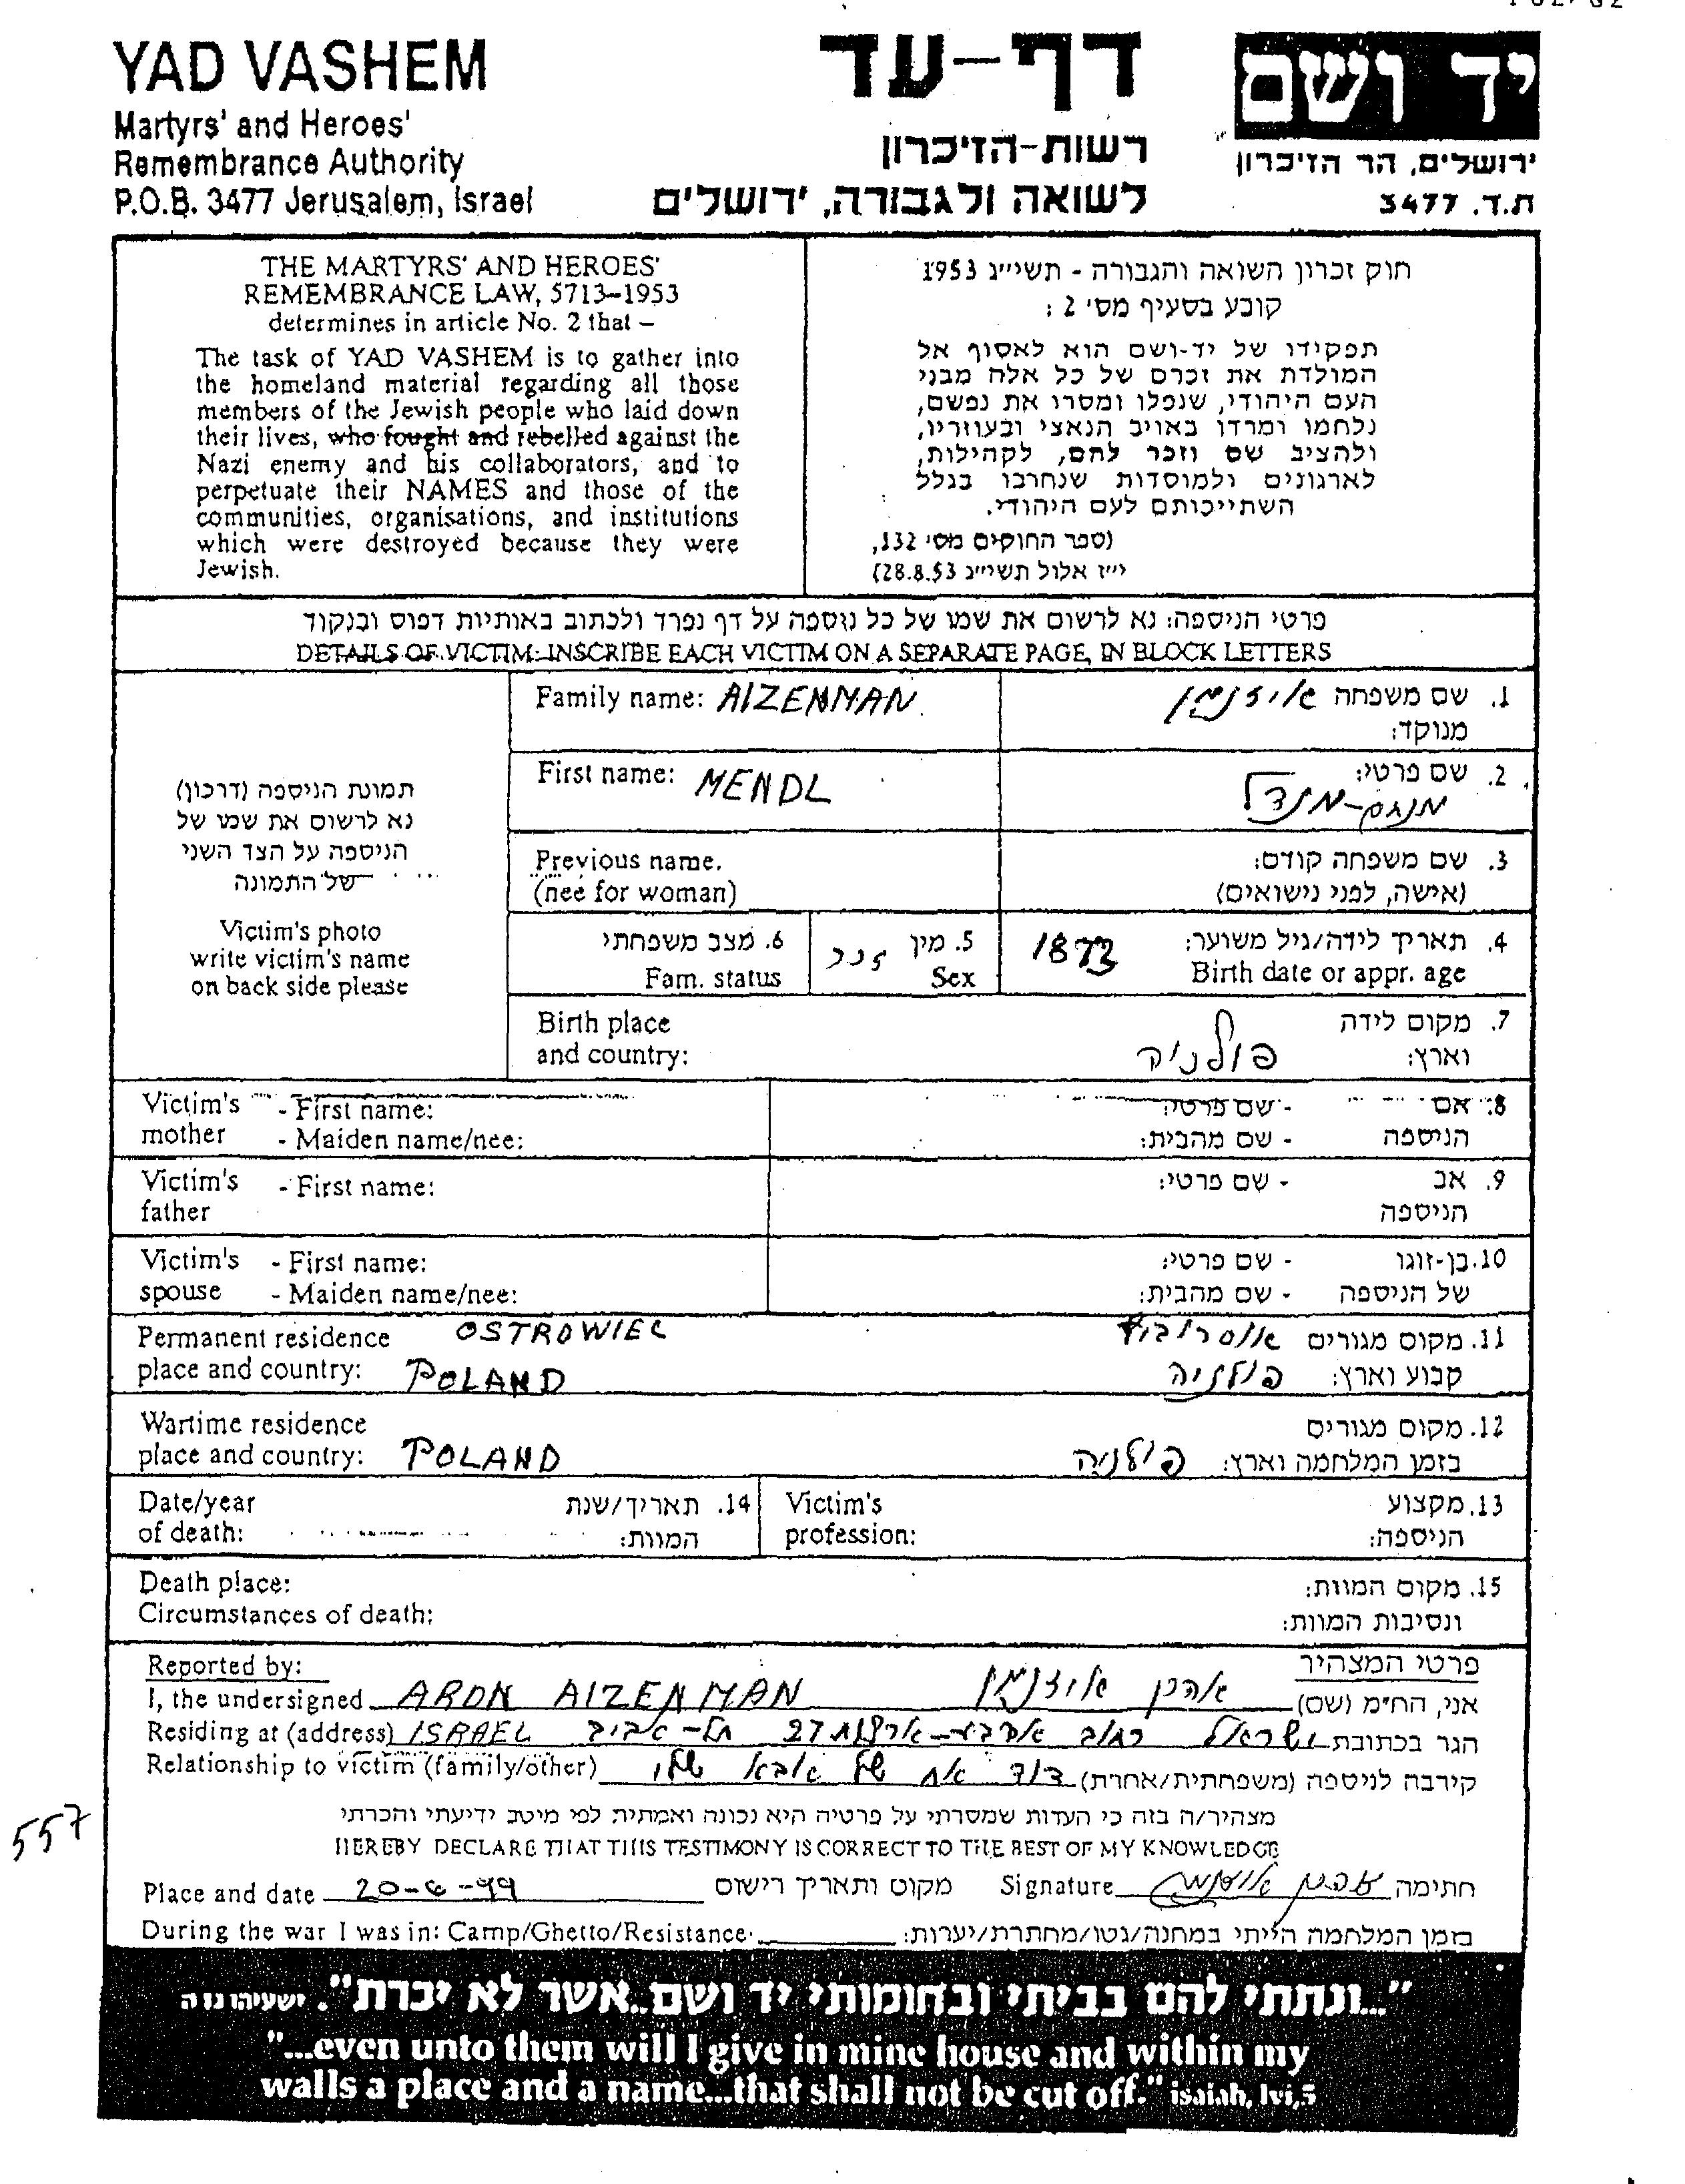 YAD VASHEM
Martyrs' and Heroes'
Remembrance Authority
P.O.B. 3477 Jerusalem, Israel
דף-עד
רשות-הזיכרון
לשואה ולגבורה, ירושלים
יד ושם
ירושלים, הר הזיכרון
ת.ד. 3477
THE MARTYRS' AND HEROES'
REMEMBRANCE LAW, 5713–1953
determines in article No. 2 that –
The task of YAD VASHEM is to gather into
the homeland material regarding all those
members of the Jewish people who laid down
their lives, who fought and rebelled against the
Nazi enemy and his collaborators, and to
perpetuate their NAMES and those of the
communities, organisations, and institutions
which were destroyed because they were
Jewish.
חוק זכרון השואה והגבורה - תשי״ג 1953
קובע בסעיף מס׳ 2 :
תפקידו של יד-ושם הוא לאסוף אל
המולדת את זכרם של כל אלה מבני
העם היהודי, שנפלו ומסרו את נפשם,
נלחמו ומרדו באויב הנאצי ובעוזריו,
ולהציב שם וזכר להם, לקהילות,
לארגונים ולמוסדות שנחרבו בגלל
השתייכותם לעם היהודי.
(ספר החוקים מס׳ 132,
י״ז אלול תשי״ג 28.8.53)
פרטי הניספה: נא לרשום את שמו של כל נוספה על דף נפרד ולכתוב באותיות דפוס ובנקוד
DETAILS OF VICTIM: INSCRIBE EACH VICTIM ON A SEPARATE PAGE, IN BLOCK LETTERS
תמונת הניספה (דרכון)
נא לרשום את שמו של
הניספה על הצד השני
של התמונה
Victim's photo
write victim's name
on back side please
Family name: AIZENMAN
1. שם משפחה איזנמן
מנוקד:
First name: MENDL
2. שם פרטי:
מנחם-מנדל
Previous name.
(nee for woman)
3. שם משפחה קודם:
(אישה, לפני נישואים)
6. מצב משפחתי
Fam. status
5. מין זכר
Sex
4. תאריך לידה/גיל משוער: 1873
Birth date or appr. age
Birth place
and country:
7. מקום לידה
וארץ: פולניה
Victim's - First name:
mother - Maiden name/nee:
8. אם - שם פרטי:
הניספה - שם מהבית:
Victim's - First name:
father
9. אב - שם פרטי:
הניספה
Victim's - First name:
spouse - Maiden name/nee:
10. בן-זוגו - שם פרטי:
של הניספה - שם מהבית:
Permanent residence OSTROWIEC
place and country: POLAND
11. מקום מגורים אוסטרוביץ
קבוע וארץ: פולניה
Wartime residence
place and country: POLAND
12. מקום מגורים
בזמן המלחמה וארץ: פולניה
Date/year
of death:
14. תאריך/שנת
המוות:
Victim's
profession:
13. מקצוע
הניספה:
Death place:
Circumstances of death:
15. מקום המוות:
ונסיבות המוות:
Reported by:
פרטי המצהיר
I, the undersigned ARON AIZENMAN
אני, החי״מ (שם) אהרן איזנמן
Residing at (address) ISRAEL
הגר בכתובת ישראל רחוב ארבע-ארצות 27 תל-אביב
Relationship to victim (family/other)
קירבה לניספה (משפחתית/אחרת) דוד אח של אבא שלי
מצהיר/ה בזה כי העדות שמסרתי על פרטיה היא נכונה ואמתית לפי מיטב ידיעתי והכרתי
HEREBY DECLARE THAT THIS TESTIMONY IS CORRECT TO THE BEST OF MY KNOWLEDGE
557
Place and date 20-6-99 מקום ותאריך רישום
Signature אהרן איזנמן חתימה
During the war I was in: Camp/Ghetto/Resistance
בזמן המלחמה הייתי במחנה/גטו/מחתרת/יערות:
"...ונתתי להם בביתי ובחומותי יד ושם..אשר לא יכרת". ישעיהו נו ה
"...even unto them will I give in mine house and within my
walls a place and a name...that shall not be cut off." isaiah, lvi,5